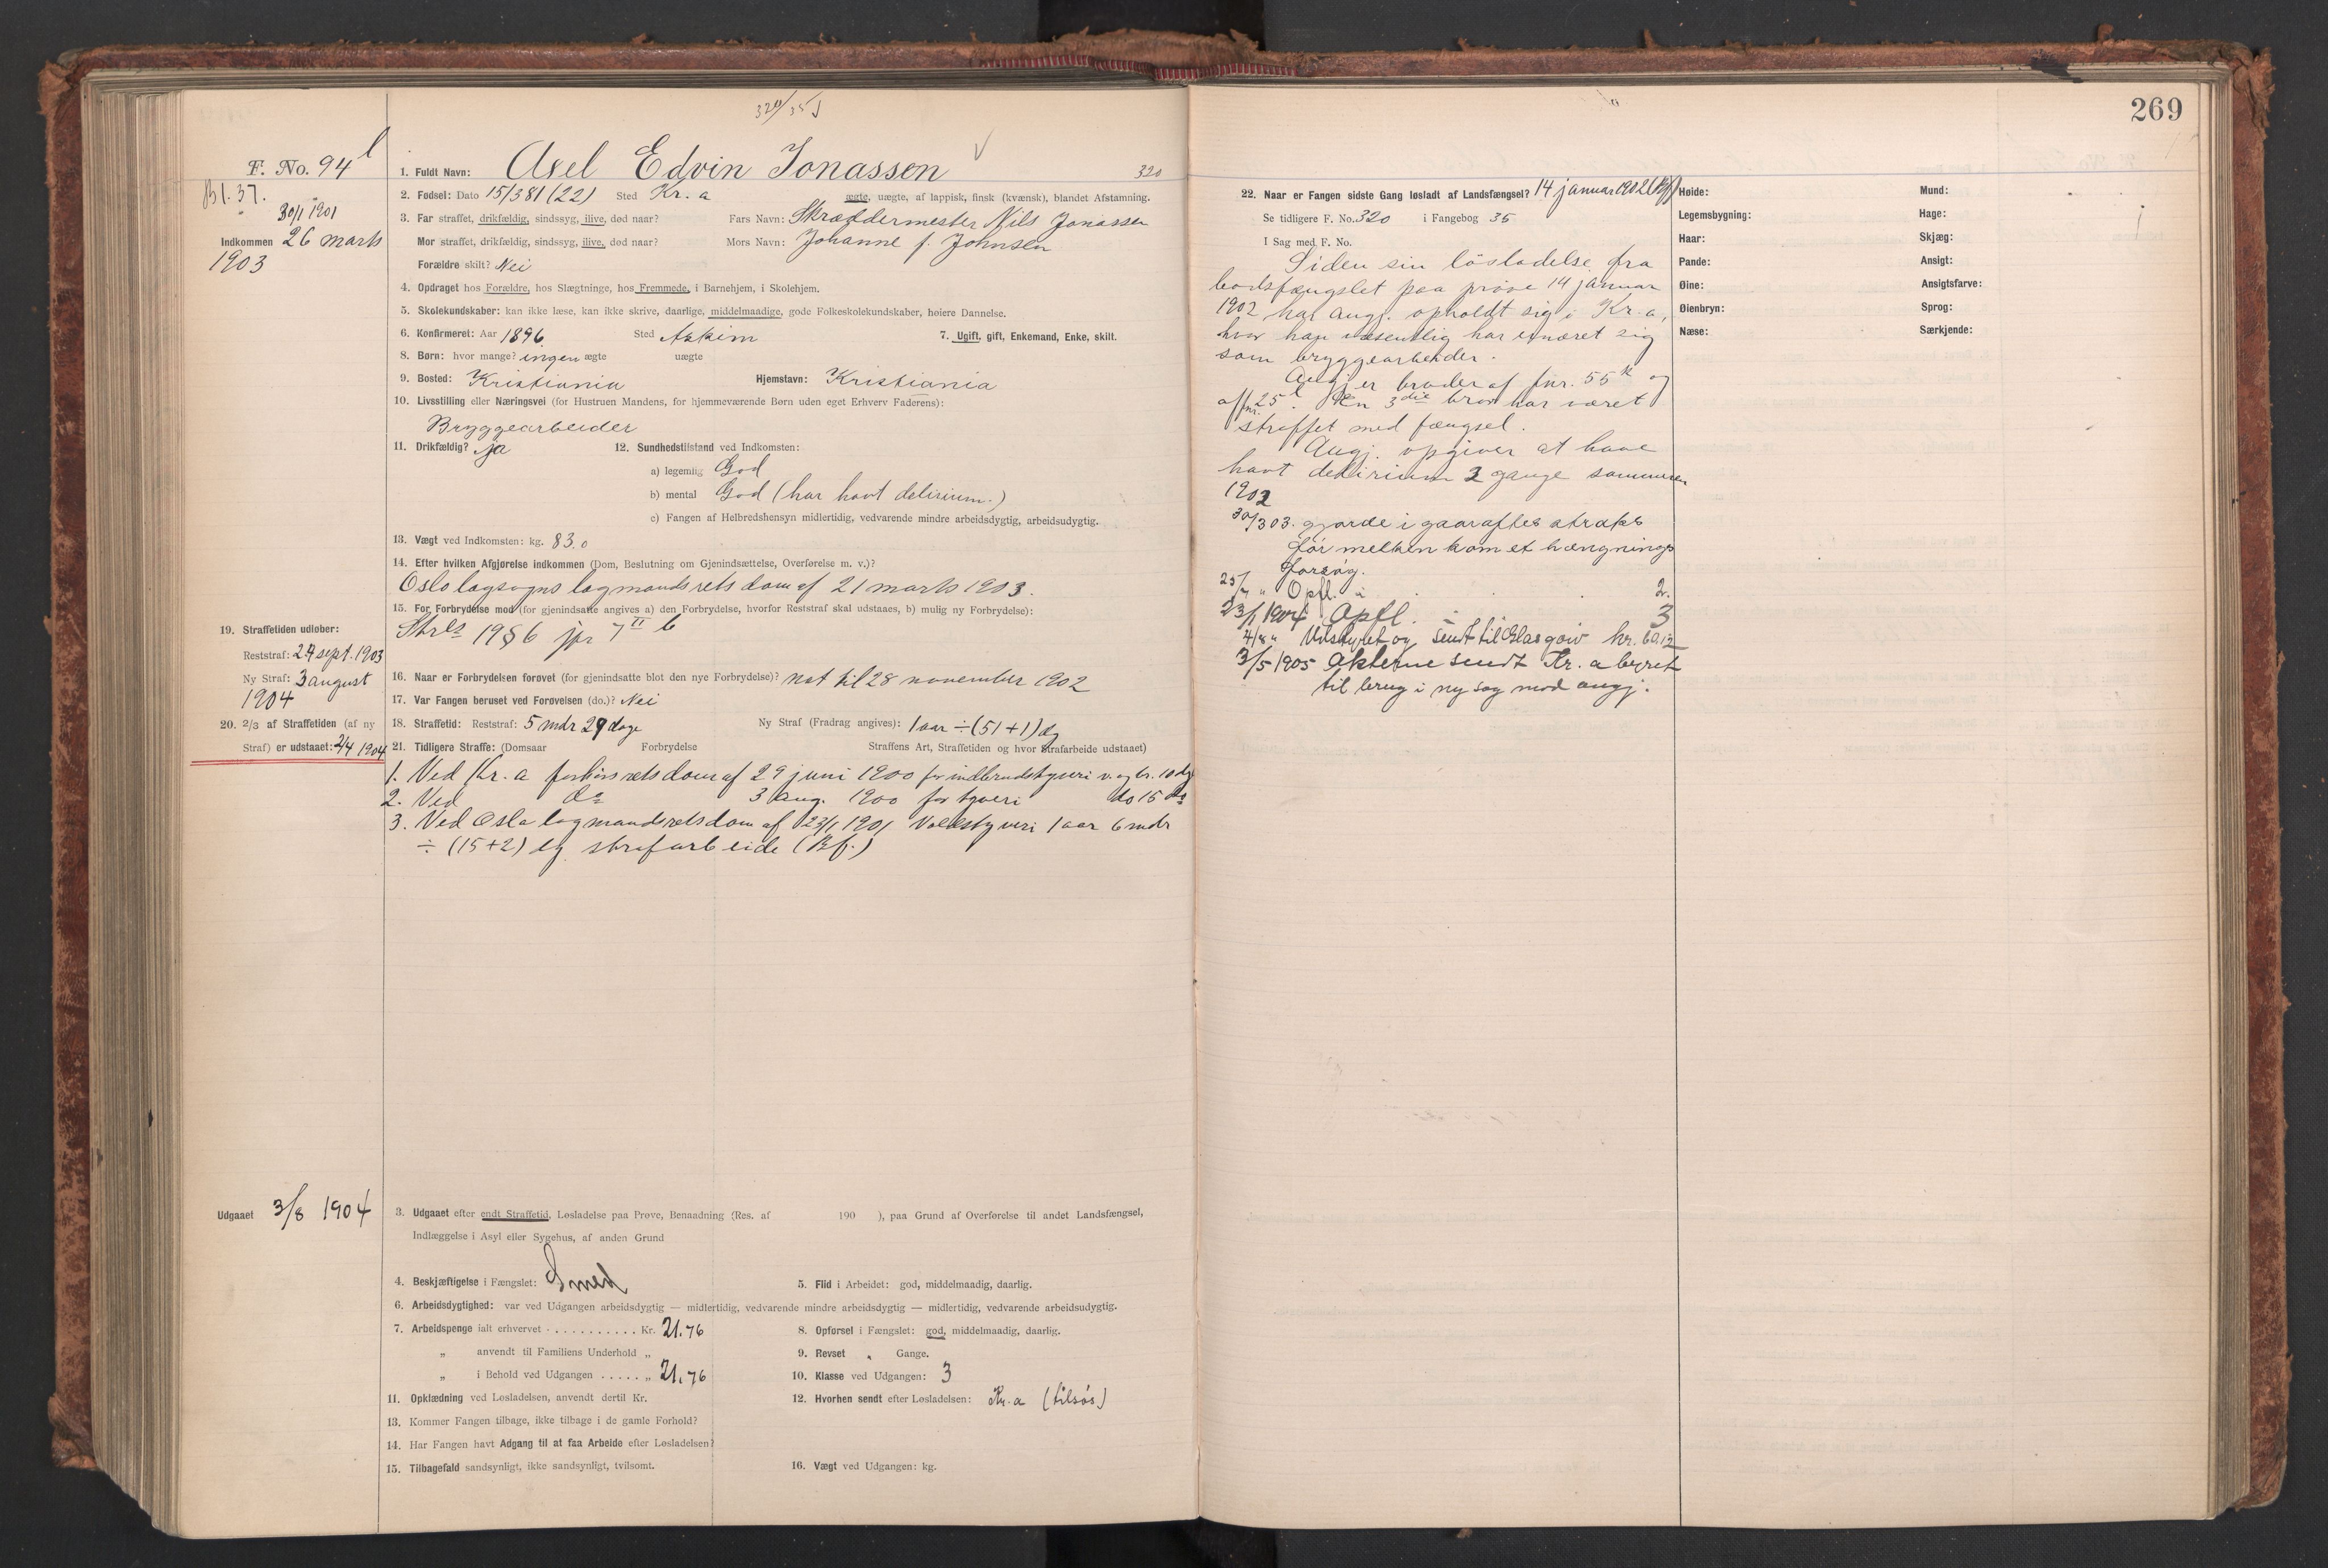 320/35
F. No. 94 l
Bl. 37.
30/1 1901
Indkommen 26 marts
1903
1. Fuldt Navn: Axel Edvin Jonassen 320
2. Fødsel: Dato 15/3 81 (22) Sted Kr.a ægte, uægte, af lappisk, finsk (kvænsk), blandet Afstamning.
3. Far straffet, drikfældig, sindssyg, ilive, død naar? Fars Navn: Skræddermester Nils Jonassen
Mor straffet, drikfældig, sindssyg, ilive, død naar? Mors Navn: Johanne f. Johnsen
Forældre skilt? Nei
4. Opdraget hos Forældre, hos Slægtninge, hos Fremmede, i Barnehjem, i Skolehjem.
5. Skolekundskaber: kan ikke læse, kan ikke skrive, daarlige, middelmaadige, gode Folkeskolekundskaber, høiere Dannelse.
6. Konfirmeret: Aar 1896. Sted Askim 7. Ugift, gift, Enkemand, Enke, skilt.
8. Børn: hvor mange? ingen ægte uægte
9. Bosted: Kristiania Hjemstavn: Kristiania
10. Livsstilling eller Næringsvei (for Hustruen Mandens, for hjemmeværende Børn uden eget Erhverv Faderens):
Bryggearbeider
11. Drikfældig? ja 12. Sundhedstilstand ved Indkomsten:
a) legemlig God
b) mental God (har havt delirium.)
c) Fangen af Helbredshensyn midlertidig, vedvarende mindre arbeidsdygtig, arbeidsudygtig.
13. Vægt ved Indkomsten: kg. 83.0
14. Efter hvilken Afgjørelse indkommen (Dom, Beslutning om Gjenindsættelse, Overførelse m. v.)?
Oslo lagsogns lagmandsrets dom af 21 marts 1903.
15. For Forbrydelse mod (for gjenindsatte angives a) den Forbrydelse, hvorfor Reststraf skal udstaaes, b) mulig ny Forbrydelse):
Strls 19 § 6 jfr 7 II b
16. Naar er Forbrydelsen forøvet (for gjenindsatte blot den nye Forbrydelse)? nat til 28 november 1902
17. Var Fangen beruset ved Forøvelsen (do.)? Nei
18. Straffetid: Reststraf: 5 mdr 29 dage Ny Straf (Fradrag angives): 1 aar ÷ (51 + 1) dg
19. Straffetiden udløber:
Reststraf: 24 sept. 1903
Ny Straf: 3 august
1904
20. 2/3 af Straffetiden (af ny
Straf) er udstaaet: 2/4 1904
21. Tidligere Straffe: (Domsaar Forbrydelse Straffens Art, Straffetiden og hvor Strafarbeide udstaaet)
1. Ved Kr.a forhørsrets dom af 29 juni 1900 for indbrudstyveri v. og br. 10 dg
2. Ved do 3 aug. 1900 for tyveri do 15 do
3. Ved Oslo lagmandsrets dom af 23/1 1901 Voldstyveri 1 aar 6 mdr
÷ (15+2) dg. strafarbeide (Bf.)
Udgaaet 3/8 1904
3. Udgaaet efter endt Straffetid, Løsladelse paa Prøve, Benaadning (Res. af 190 ), paa Grund af Overførelse til andet Landsfængsel,
Indlæggelse i Asyl eller Sygehus, af anden Grund
4. Beskjæftigelse i Fængslet: Smed 5. Flid i Arbeidet: god, middelmaadig, daarlig.
6. Arbeidsdygtighed: var ved Udgangen arbeidsdygtig — midlertidig, vedvarende mindre arbeidsdygtig — midlertidig, vedvarende arbeidsudygtig.
7. Arbeidspenge ialt erhvervet . . . . . . . . . . . Kr. 21.76 8. Opførsel i Fængslet: god, middelmaadig, daarlig.
„ anvendt til Familiens Underhold „ 9. Revset „ Gange.
„ i Behold ved Udgangen . . . . . „ 21.76 10. Klasse ved Udgangen: 3
11. Opklædning ved Løsladelsen, anvendt dertil Kr. 12. Hvorhen sendt efter Løsladelsen: Kr.a (tilsøs)
13. Kommer Fangen tilbage, ikke tilbage i de gamle Forhold?
14. Har Fangen havt Adgang til at faa Arbeide efter Løsladelsen?
15. Tilbagefald sandsynligt, ikke sandsynligt, tvilsomt. 16. Vægt ved Udgangen: kg.
269
22. Naar er Fangen sidste Gang løsladt af Landsfængsel? 14 januar 1902 (Bf)
Se tidligere F. No. 320 i Fangebog 35
I Sag med F. No.
Siden sin løsladelse fra
bodsfængslet paa prøve 14 januar
1902 har angj. opholdt sig i Kr.a,
hvor han væsentlig har ernæret sig
som bryggearbeider.
Angj. er broder af fnr. 55 k og
af fnr. 25 l. En 3die bror har været
straffet med fængsel.
Angj. opgiver at have
havt delirium 2 gange sommeren
1902
30/3 03. gjorde i gaaraftes straks
før melken kom et hængnings
forsøg.
25/7 " Opfl. i 2.
23/1 1904 Opfl. - 3
4/8 " Udstyret og sendt til Glasgow kr. 60.12
3/5 1905 Akterne sendt Kr.a byret
til brug i ny sag mod angj.
Høide: Mund:
Legemsbygning: Hage:
Haar: Skjæg:
Pande: Ansigt:
Øine: Ansigtsfarve:
Øienbryn: Sprog:
Næse: Særkjende: